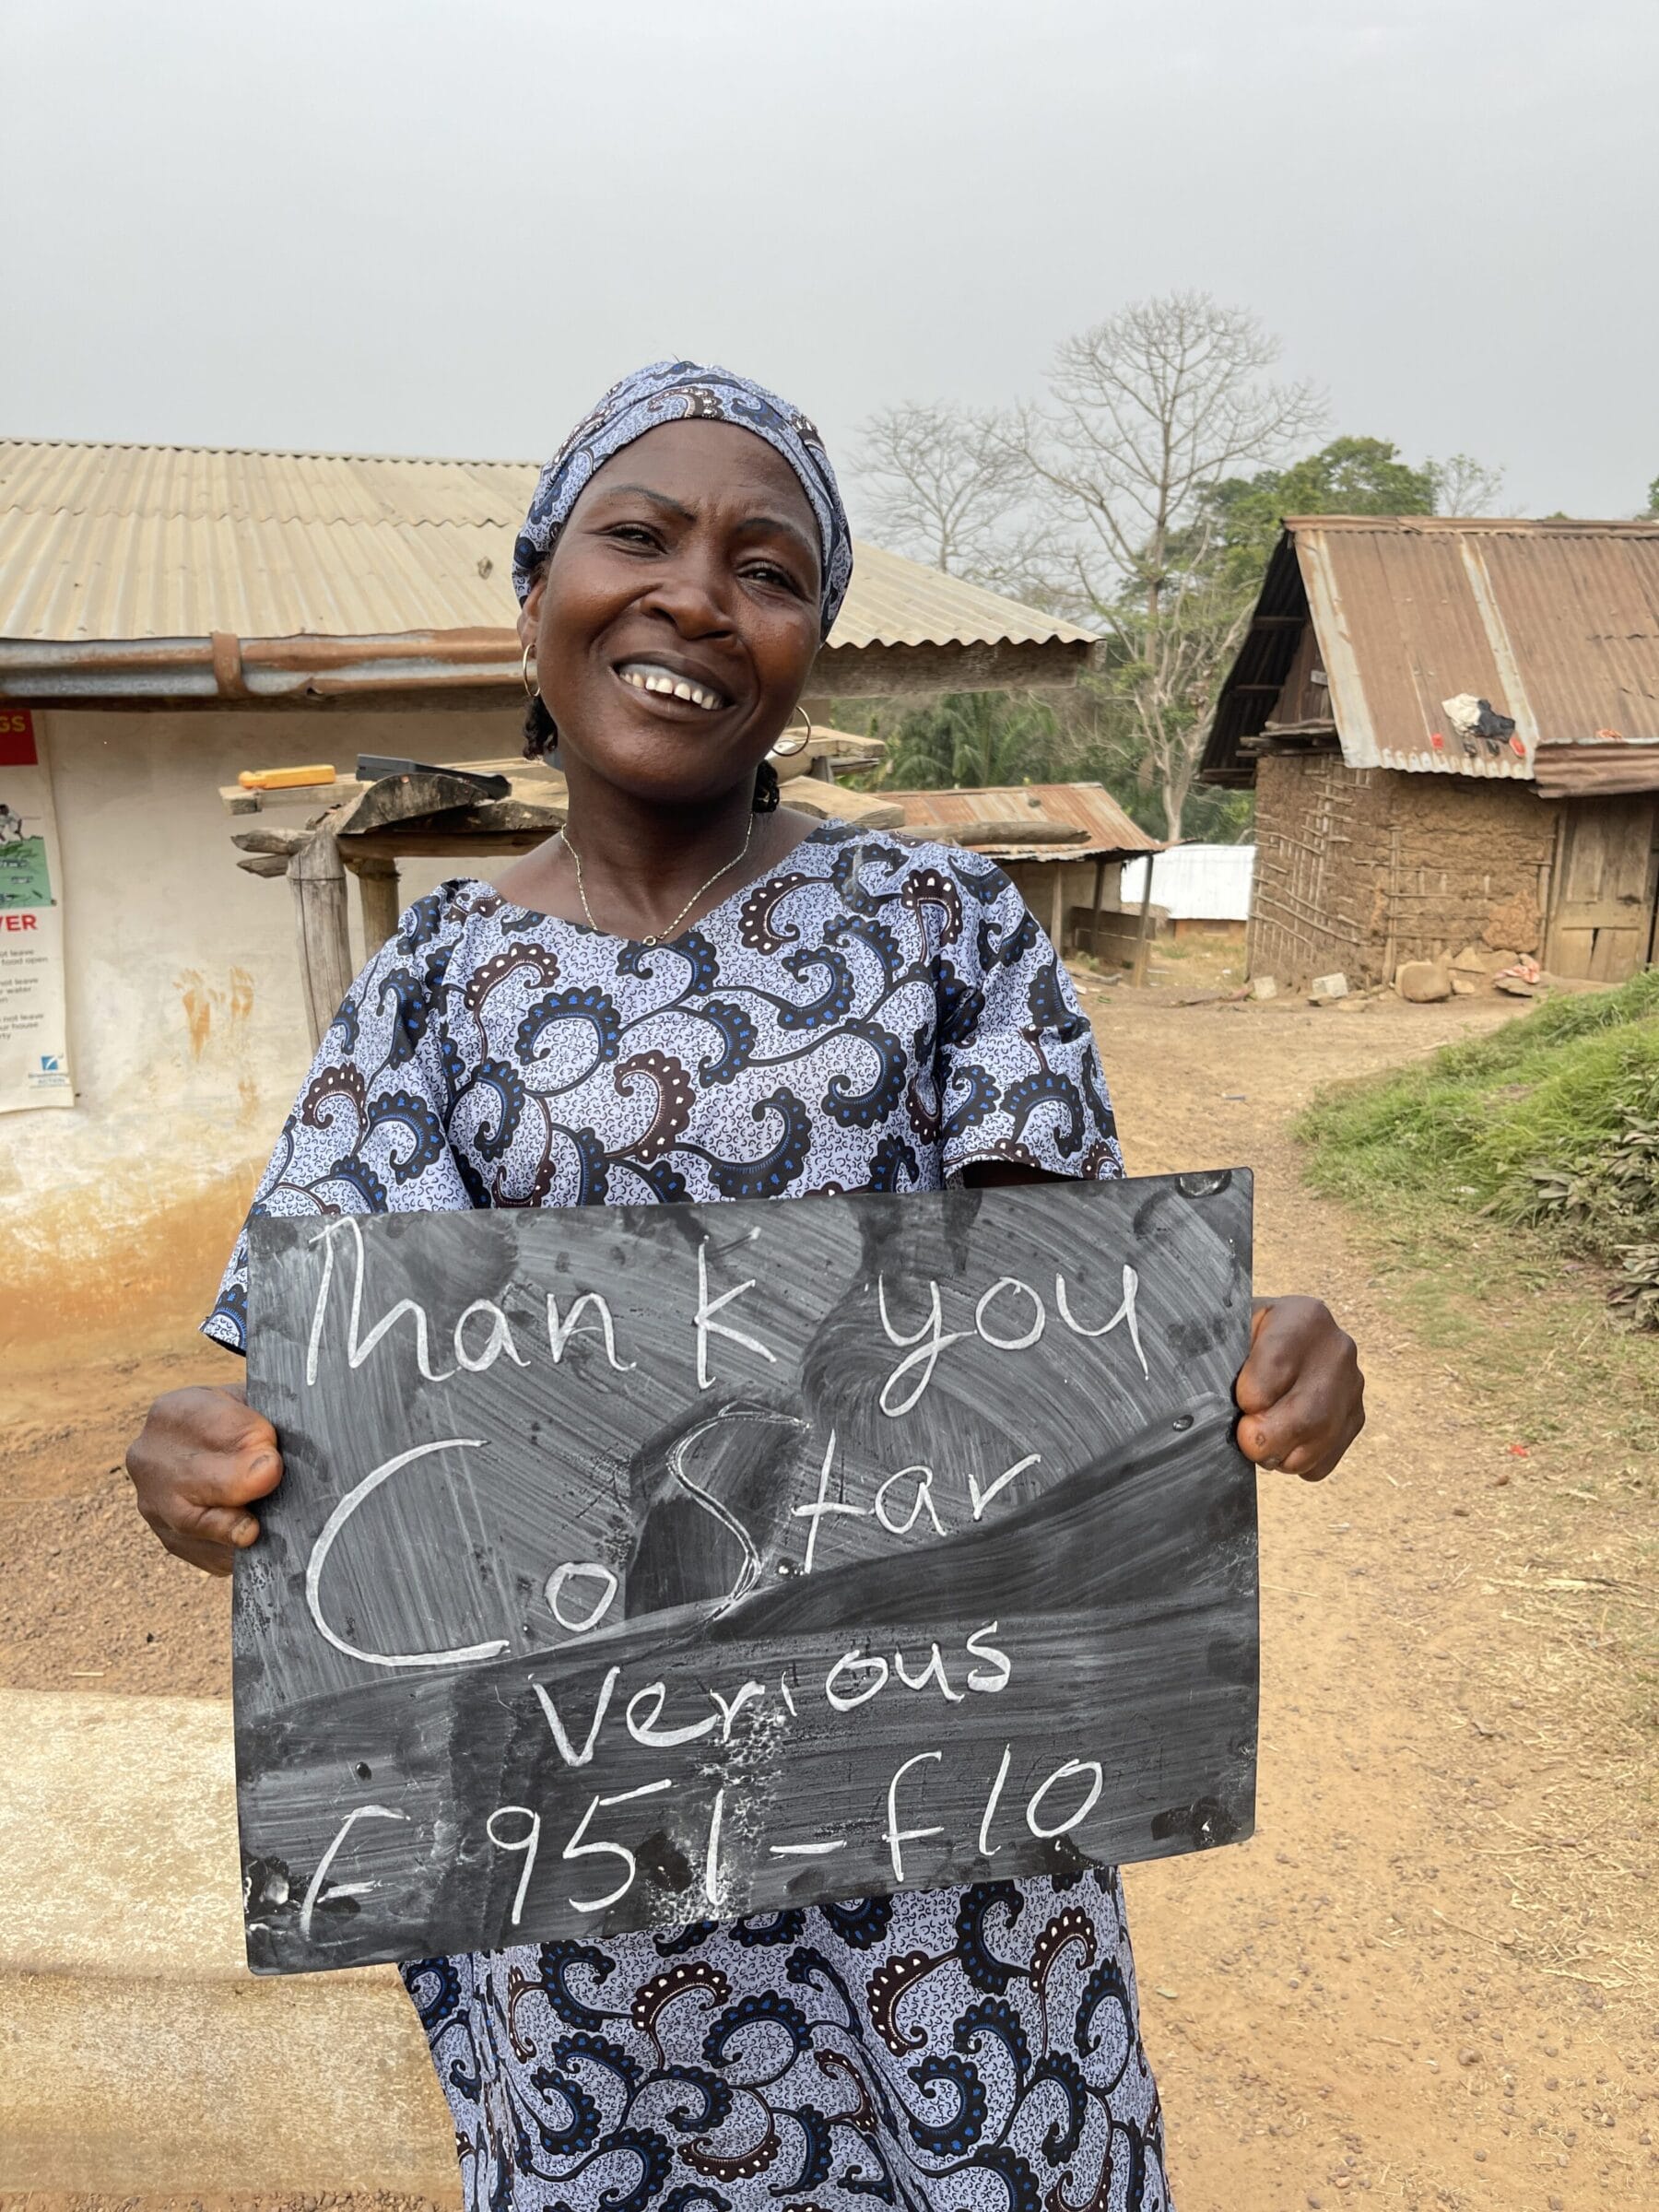 GS
VER
not leave
food open
not leave
r water
n
not leave
ur house
rty
Thank you
CoStar
Verious
F 951-f10